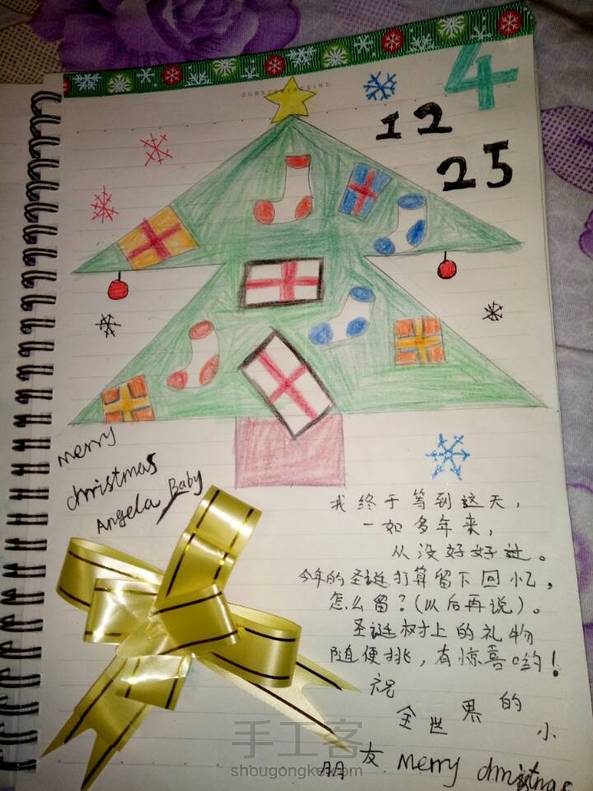 4
12
25
merry
christmas
Angela Baby
我终于等到这天,
一如多年来,
从没好好过。
今年的圣诞打算留下回忆,
怎么留?(以后再说)。
圣诞树上的礼物
随便挑,有惊喜哟!
祝
全世界的小
朋友 merry christmas
手工客
shougongke.com